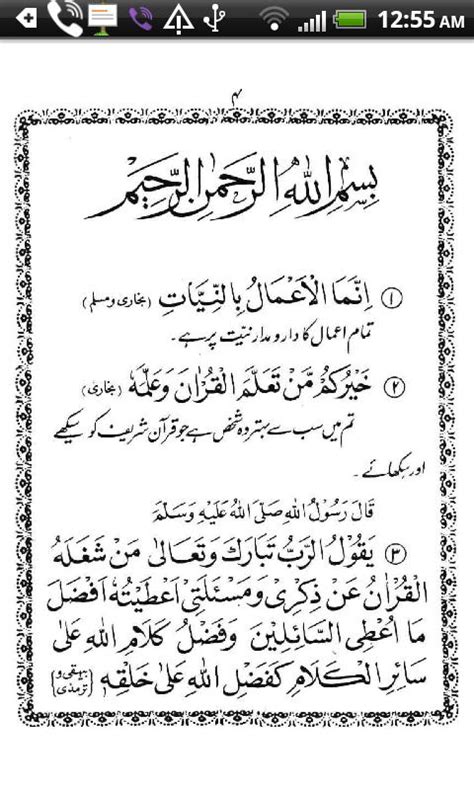 12:55 AM
۴
بِسْمِ اللهِ الرَّحْمٰنِ الرَّحِيْمِ
① اِنَّمَا الْاَعْمَالُ بِالنِّيَّاتِ (بخاری ومسلم)
تمام اعمال کا دارومدار نیّت پر ہے۔
② خَيْرُكُمْ مَّنْ تَعَلَّمَ الْقُرْاٰنَ وَعَلَّمَهٗ (بخاری)
تم میں سب سے بہتر وہ شخص ہے جو قرآن شریف کو سیکھے
اور سکھائے۔
قَالَ رَسُوْلُ اللهِ صَلَّى اللهُ عَلَيْهِ وَسَلَّمَ
③ يَقُوْلُ الرَّبُّ تَبَارَكَ وَتَعَالىٰ مَنْ شَغَلَهُ
الْقُرْاٰنُ عَنْ ذِكْرِىْ وَمَسْئَلَتِىْ اَعْطَيْتُهٗ اَفْضَلَ
مَا اُعْطِى السَّائِلِيْنَ وَفَضْلُ كَلَامِ اللهِ عَلىٰ
سَائِرِ الْكَلَامِ كَفَضْلِ اللهِ عَلىٰ خَلْقِهٖ {بیہقی و ترمذی}